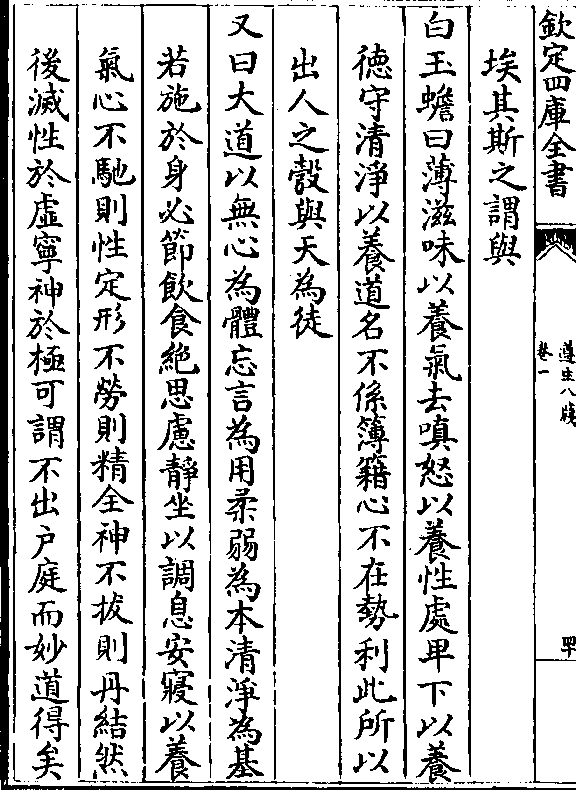 欽定四庫全書
遵生八牋
卷一
罕
埃其斯之謂與
白玉蟾曰薄滋味以養氣去嗔怒以養性處卑下以養
德守清淨以養道名不係簿籍心不在勢利此所以
出人之殼與天為徒
又曰大道以無心為體忘言為用柔弱為本清淨為基
若施於身必節飲食絕思慮靜坐以調息安寢以養
氣心不馳則性定形不勞則精全神不拔則丹結然
後滅性於虛寧神於極可謂不出戶庭而妙道得矣